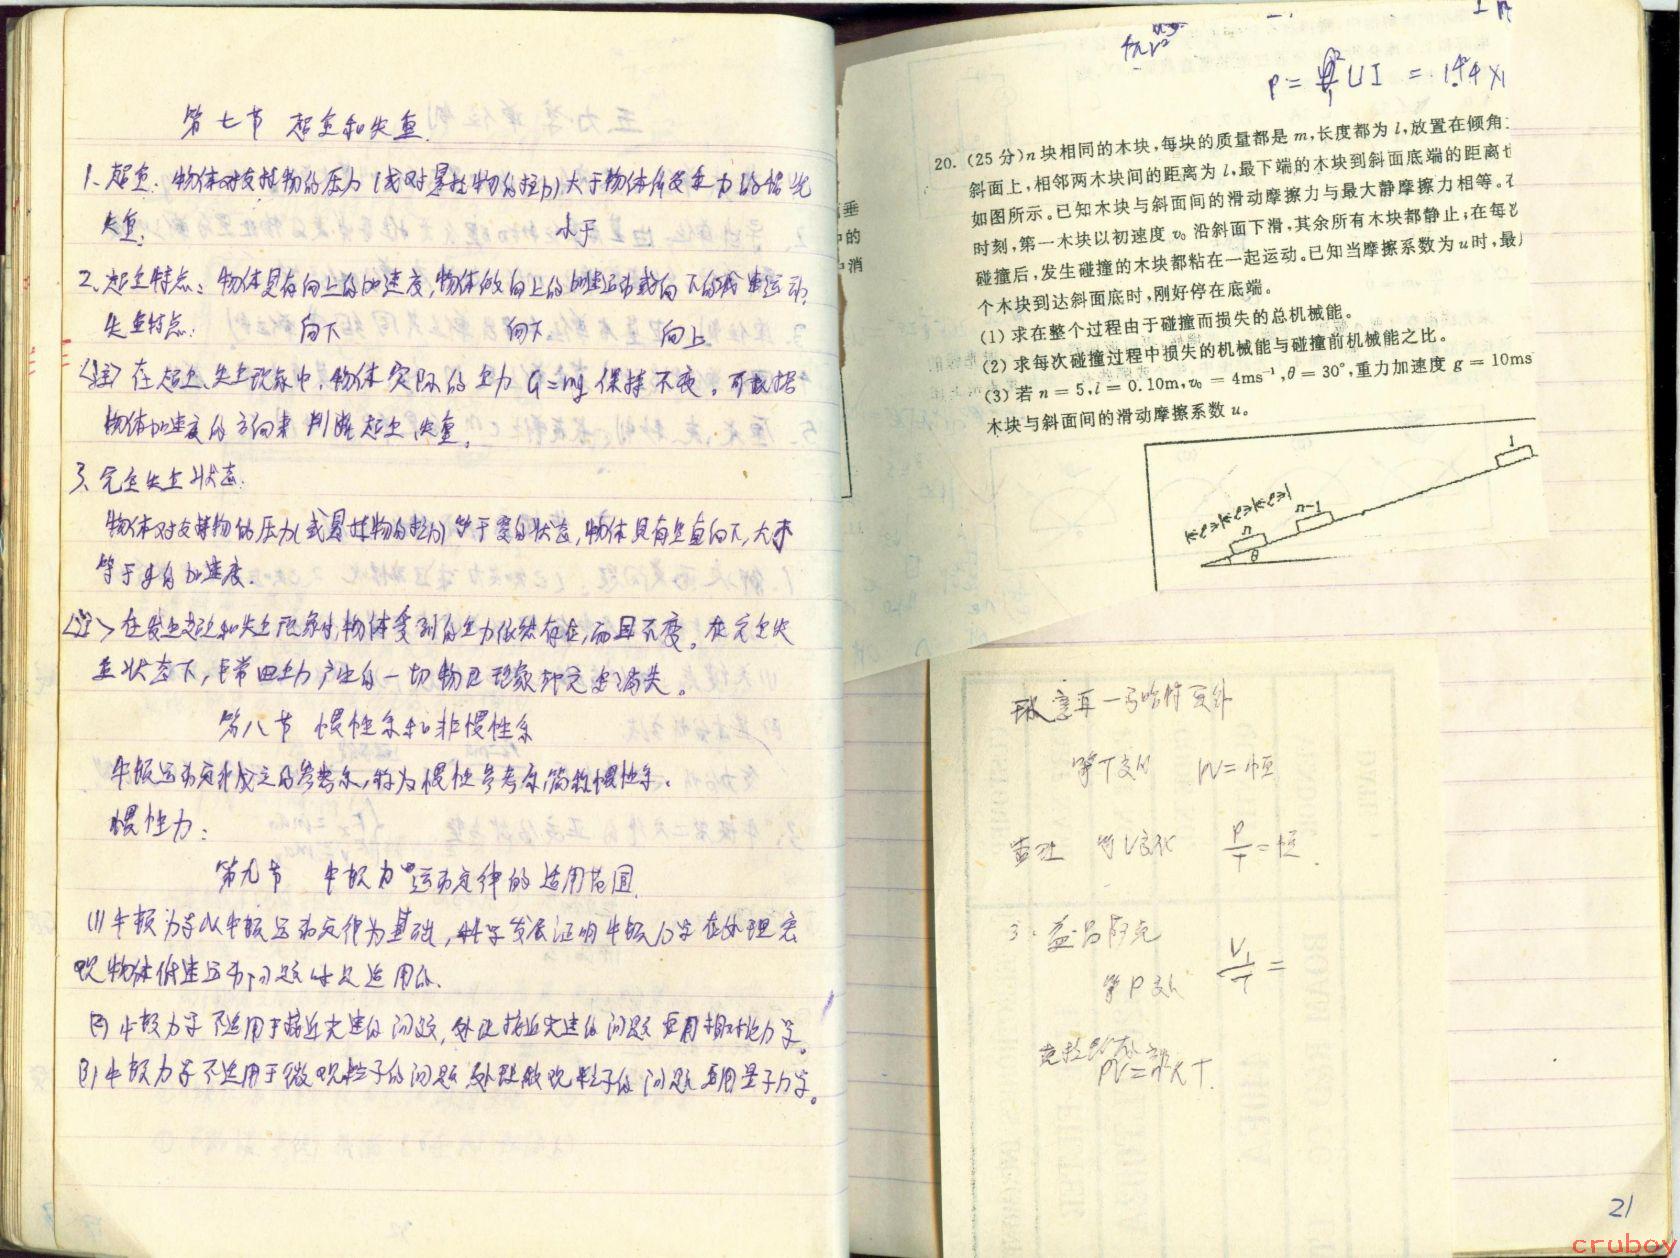 第七节 超重和失重.
1、超重：物体对支持物的压力(或对悬挂物的拉力)大于物体所受重力的情况
失重： 小于
2、超重特点：物体具有向上的加速度,物体做向上的加速运动或向下的减速运动.
失重特点： 向下 向下 向上
<注> 在超重、失重现象中,物体实际的重力 G=mg 保持不变。可根据
物体加速度的方向来判断超重失重。
3、完全失重状态:
物体对支持物的压力(或悬挂物的拉力)等于零的状态,物体具有竖直向下,大小
等于g的加速度.
<注> 在发生超重和失重现象时,物体受到的重力依然存在,而且不变。在完全失
重状态下,平常由重力产生的一切物理现象都完全消失。
第八节 惯性系和非惯性系
牛顿运动定律成立的参考系,称为惯性参考系,简称惯性系.
惯性力：
第九节 牛顿力运动定律的适用范围.
(1) 牛顿力学以牛顿运动定律为基础,科学发展证明牛顿力学在处理宏
观物体低速运动问题时是适用的.
(2) 牛顿力学不适用于接近光速的问题,处理接近光速的问题要用相对论力学。
(3) 牛顿力学不适用于微观粒子的问题,处理微观粒子的问题要用量子力学。
垂
中的
消
P= UI = 1.44 ×1
20. (25 分) n 块相同的木块,每块的质量都是 m,长度都为 l,放置在倾角
斜面上,相邻两木块间的距离为 l,最下端的木块到斜面底端的距离也
如图所示。已知木块与斜面间的滑动摩擦力与最大静摩擦力相等。在
时刻,第一木块以初速度 v₀ 沿斜面下滑,其余所有木块都静止;在每次
碰撞后,发生碰撞的木块都粘在一起运动。已知当摩擦系数为 u 时,最
个木块到达斜面底时,刚好停在底端。
(1) 求在整个过程由于碰撞而损失的总机械能。
(2) 求每次碰撞过程中损失的机械能与碰撞前机械能之比。
(3) 若 n = 5, l = 0.10m, v₀ = 4ms⁻¹, θ = 30°,重力加速度 g = 10ms
木块与斜面间的滑动摩擦系数 u。
1
n-1
|<l>|<l>|<l>|
n
θ
玻意耳—马略特定律
等T变化 PV=恒
查理 等V变化 P/T=恒.
3. 盖·吕萨克
等P变化 V₁/T=
克拉珀龙
PV=RT.
21
cruboy